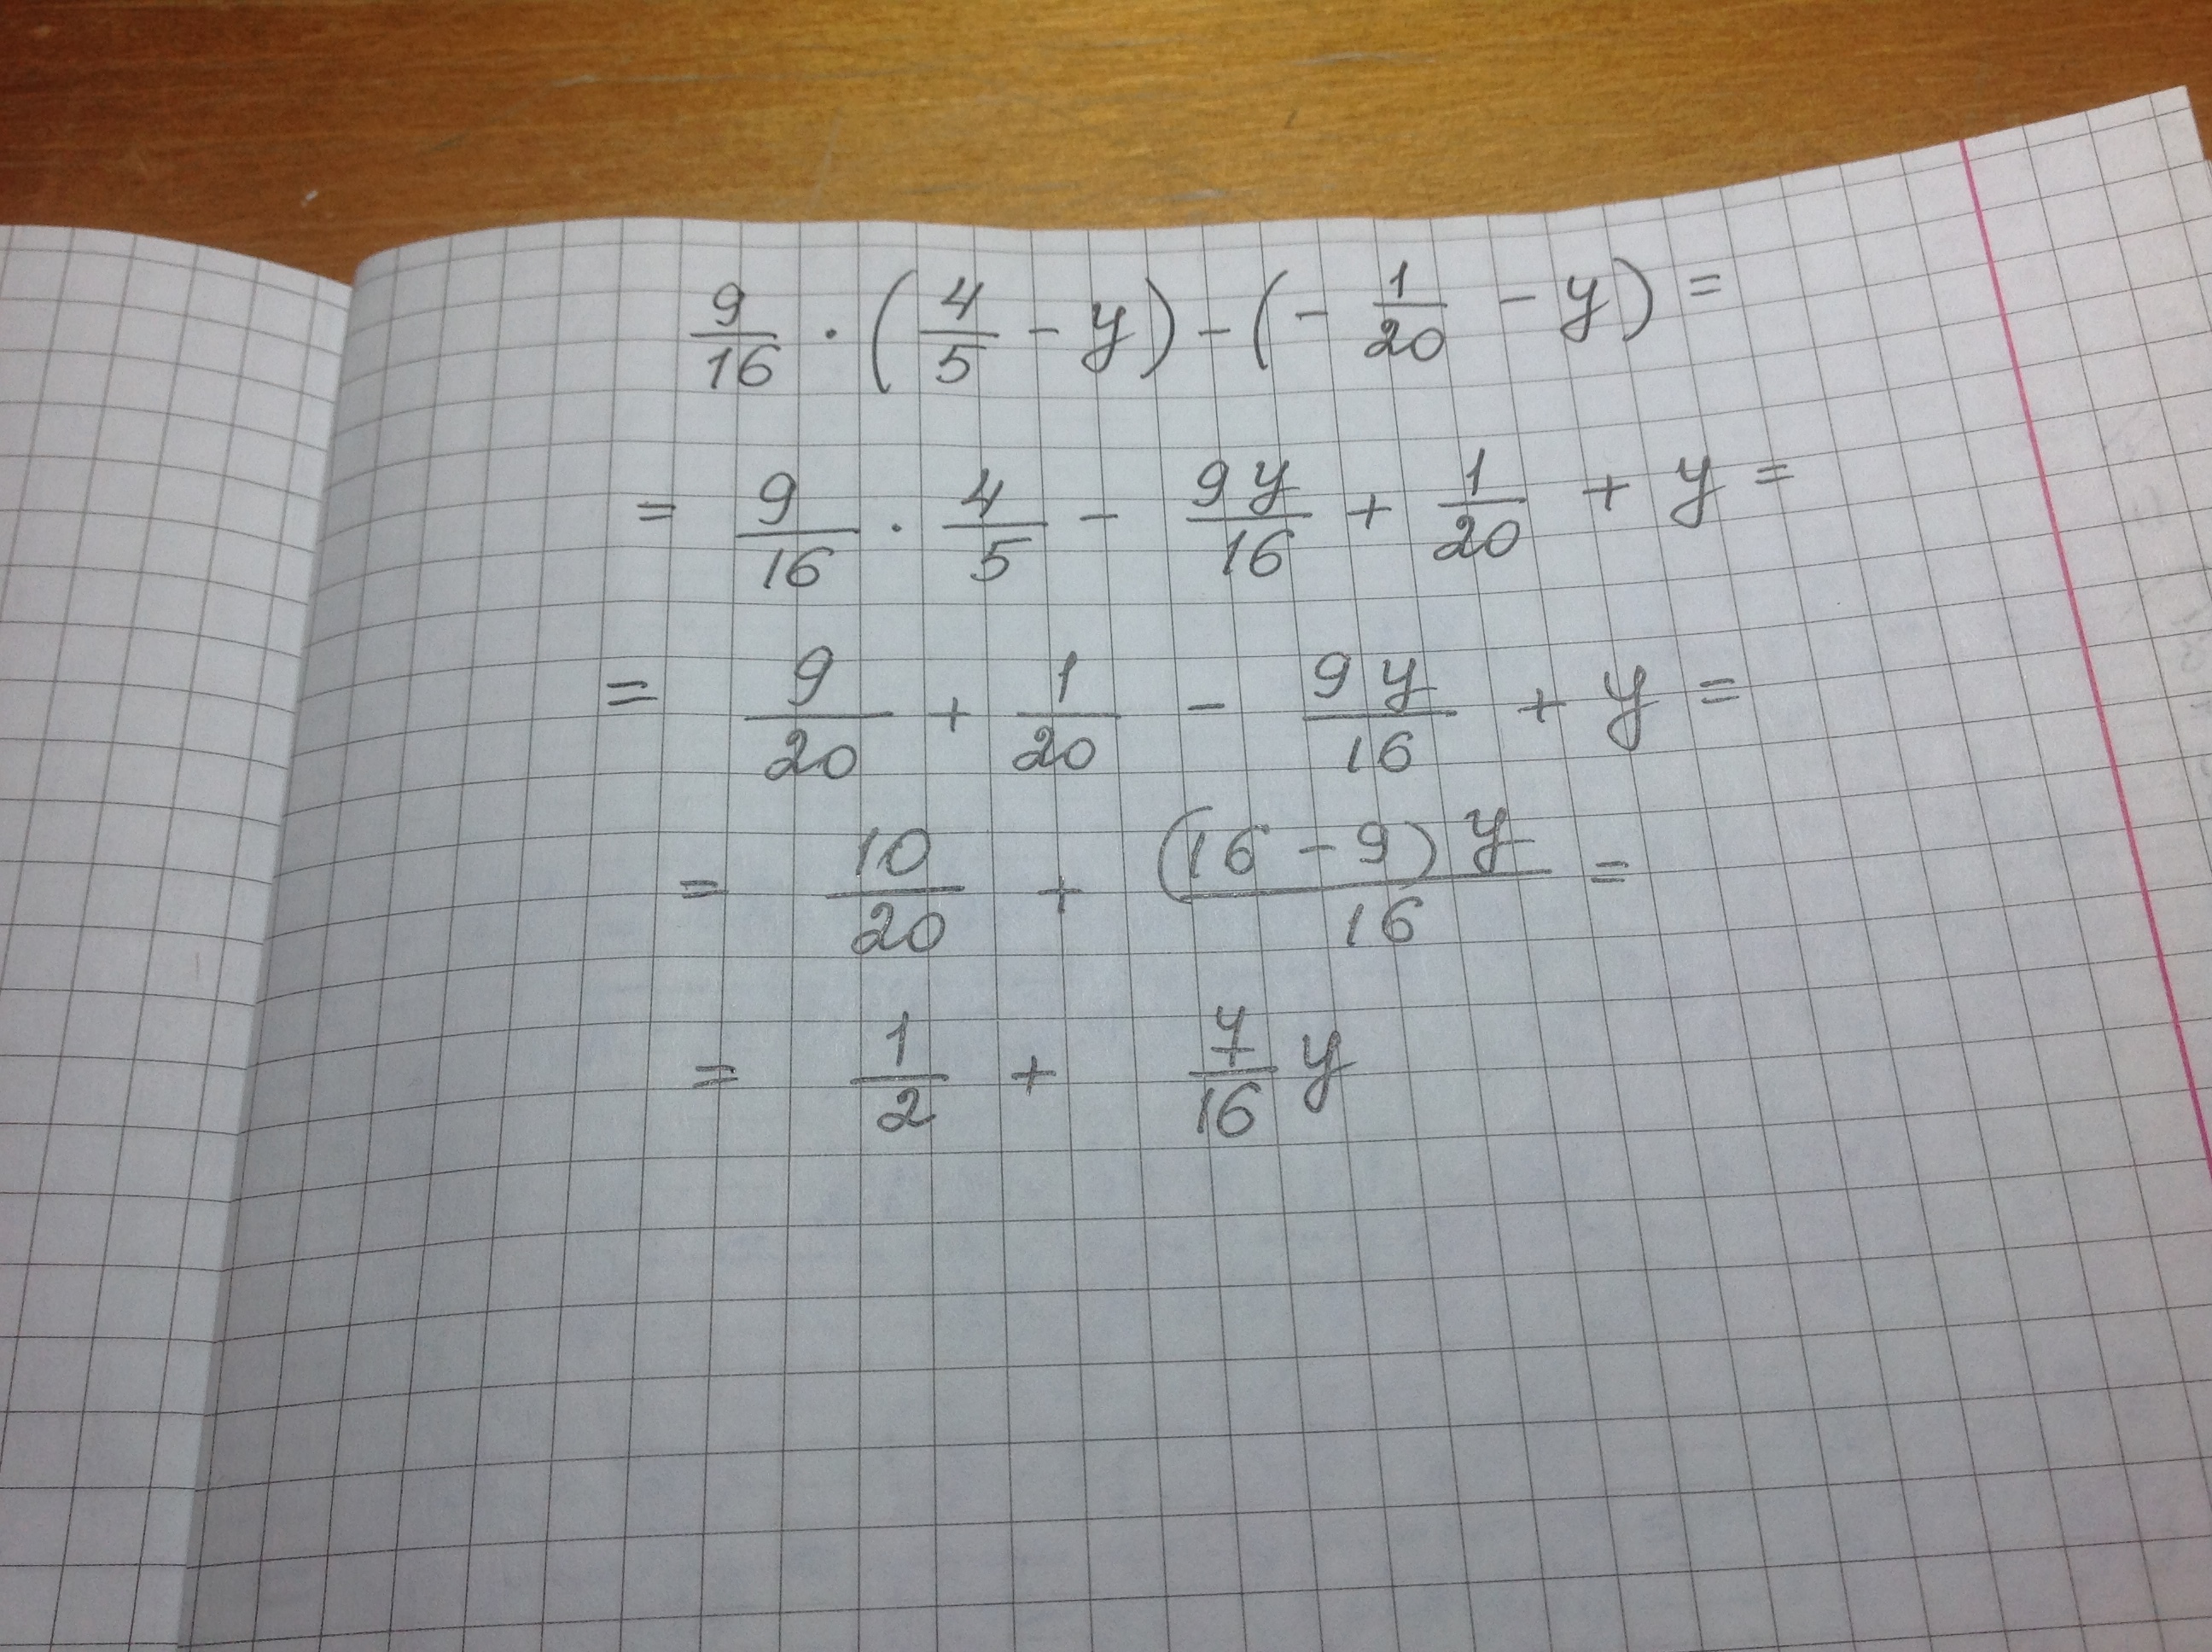 9/16 · (4/5 - y) - (- 1/20 - y) =
= 9/16 · 4/5 - 9y/16 + 1/20 + y =
= 9/20 + 1/20 - 9y/16 + y =
= 10/20 + (16 - 9) y/16 =
= 1/2 + 7/16 y